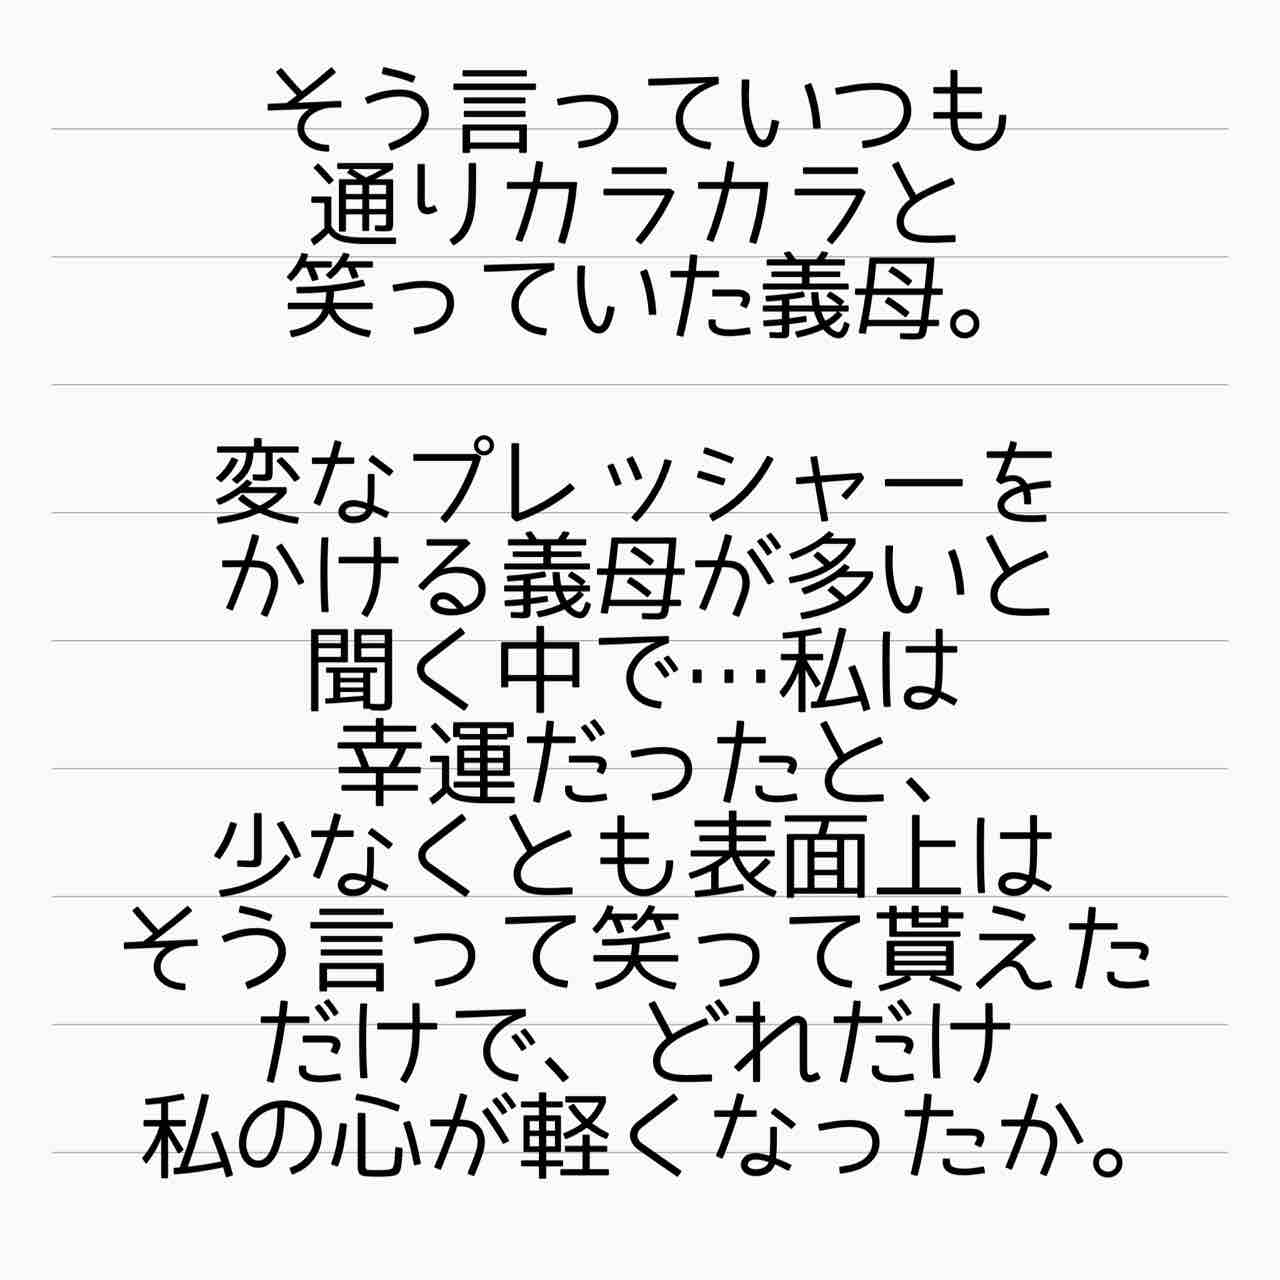 そう言っていつも
通りカラカラと
笑っていた義母。
変なプレッシャーを
かける義母が多いと
聞く中で…私は
幸運だったと、
少なくとも表面上は
そう言って笑って貰えた
だけで、どれだけ
私の心が軽くなったか。